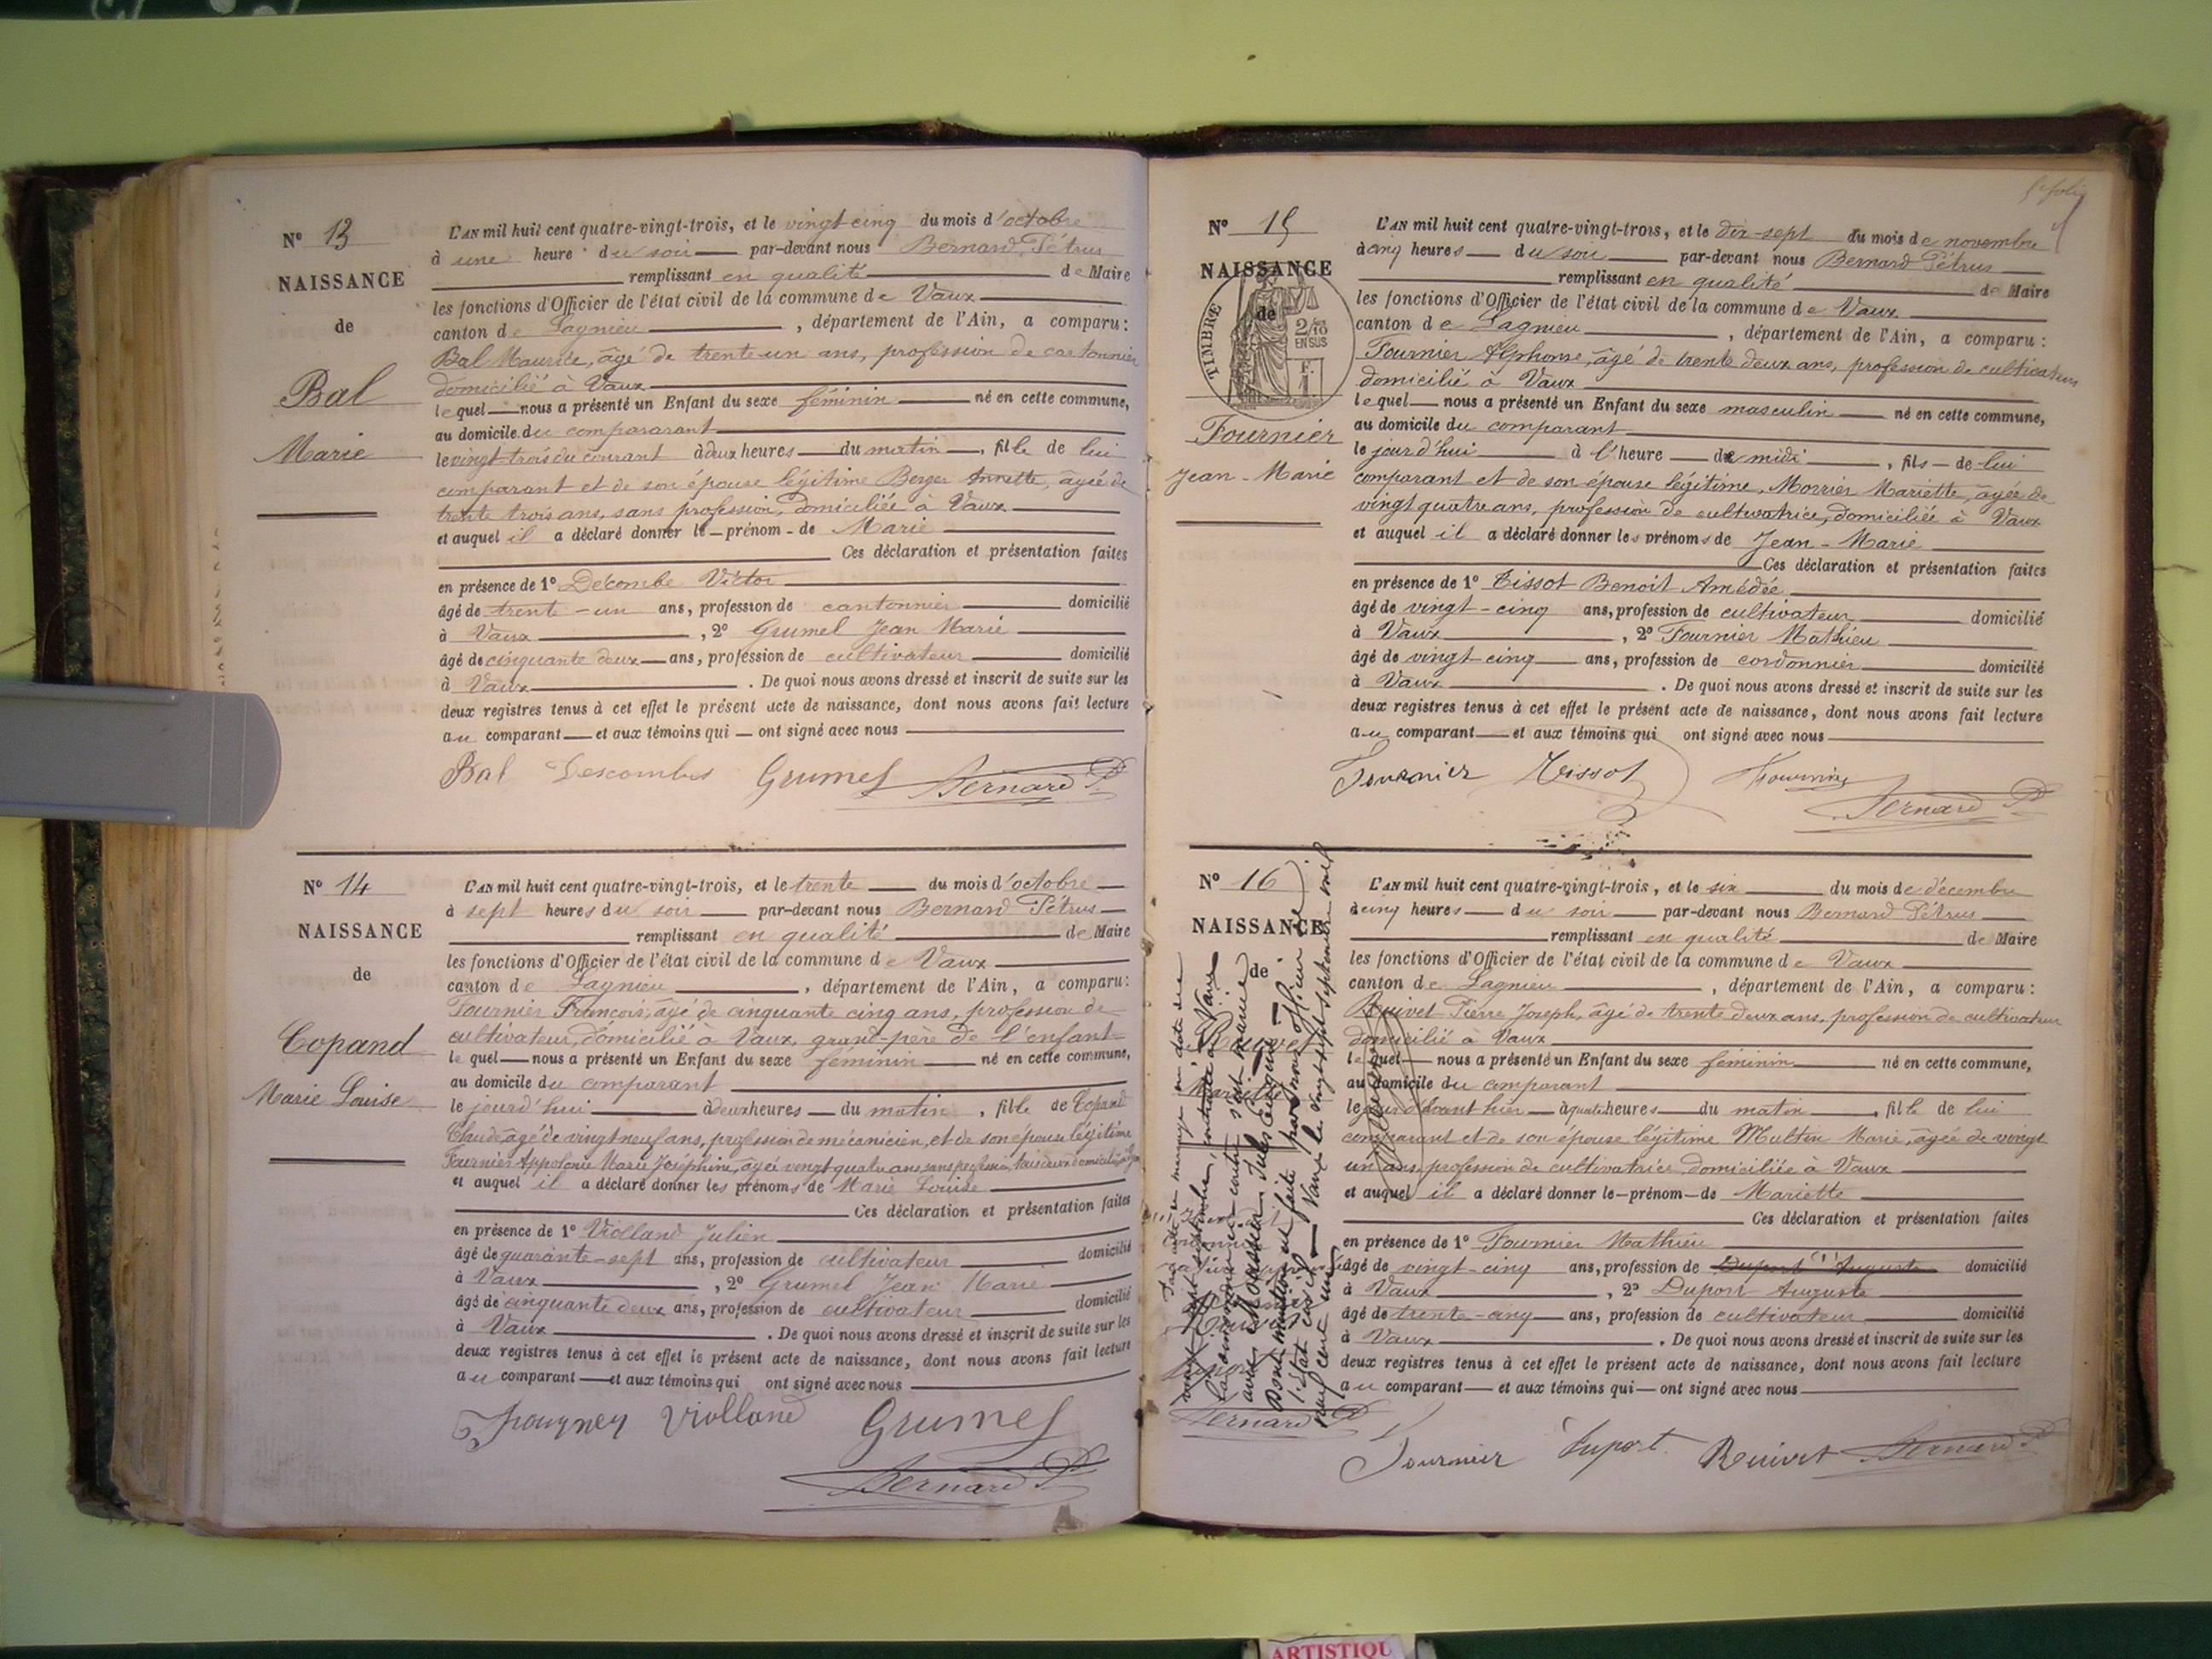 N° 13
NAISSANCE
de
Bal
Marie
L'AN mil huit cent quatre-vingt-trois, et le vingt-cinq du mois d'octobre
à une heure du soir par-devant nous Bernard Pétrus
remplissant en qualité de Maire
les fonctions d'Officier de l'état civil de la commune de Vaux
canton de Lagnieu, département de l'Ain, a comparu:
Bal Maurice, âgé de trente-un ans, profession de cantonnier
domicilié à Vaux
lequel nous a présenté un Enfant du sexe féminin né en cette commune,
au domicile du compararant
le vingt-trois du courant à deux heures du matin, fille de lui
comparant et de son épouse légitime Berger Annette, âgée de
trente trois ans, sans profession, domiciliée à Vaux
et auquel il a déclaré donner le prénom de Marie
Ces déclaration et présentation faites
en présence de 1° Décombe Victor
âgé de trente-un ans, profession de cantonnier domicilié
à Vaux, 2° Grumel Jean Marie
âgé de cinquante deux ans, profession de cultivateur domicilié
à Vaux. De quoi nous avons dressé et inscrit de suite sur les
deux registres tenus à cet effet le présent acte de naissance, dont nous avons fait lecture
au comparant et aux témoins qui ont signé avec nous
Bal Descombes Grumel Bernard P
N° 14
NAISSANCE
de
Copand
Marie Louise
L'AN mil huit cent quatre-vingt-trois, et le trente du mois d'octobre
à sept heures du soir par-devant nous Bernard Pétrus
remplissant en qualité de Maire
les fonctions d'Officier de l'état civil de la commune de Vaux
canton de Lagnieu, département de l'Ain, a comparu:
Fournier François, âgé de cinquante cinq ans, profession de
cultivateur, domicilié à Vaux, grand-père de l'enfant
lequel nous a présenté un Enfant du sexe féminin né en cette commune,
au domicile du comparant
le jourd'hui à deux heures du matin, fille de Copand
Claude, âgé de vingt neuf ans, profession de mécanicien, et de son épouse légitime
Fournier Appolonie Marie Joséphine, âgée vingt quatre ans, sans profession, tous deux domiciliés à
et auquel il a déclaré donner les prénoms de Marie Louise
Ces déclaration et présentation faites
en présence de 1° Violland Julien
âgé de quarante-sept ans, profession de cultivateur domicilié
à Vaux, 2° Grumel Jean Marie
âgé de cinquante deux ans, profession de cultivateur domicilié
à Vaux. De quoi nous avons dressé et inscrit de suite sur les
deux registres tenus à cet effet le présent acte de naissance, dont nous avons fait lecture
au comparant et aux témoins qui ont signé avec nous
Violland Grumel
Bernard P
N° 15
NAISSANCE
de
TIMBRE
2/10
EN SUS
F.
1
Fournier
Jean-Marie
L'AN mil huit cent quatre-vingt-trois, et le dix-sept du mois de novembre
à cinq heures du soir par-devant nous Bernard Pétrus
remplissant en qualité de Maire
les fonctions d'Officier de l'état civil de la commune de Vaux
canton de Lagnieu, département de l'Ain, a comparu:
Fournier Alphonse, âgé de trente deux ans, profession de cultivateur
domicilié à Vaux
lequel nous a présenté un Enfant du sexe masculin né en cette commune,
au domicile du comparant
le jourd'hui à l'heure de midi, fils de lui
comparant et de son épouse légitime, Morrier Mariette, âgée de
vingt quatre ans, profession de cultivatrice, domiciliée à Vaux
et auquel il a déclaré donner les prénoms de Jean-Marie
Ces déclaration et présentation faites
en présence de 1° Tissot Benoit Amédée
âgé de vingt-cinq ans, profession de cultivateur domicilié
à Vaux, 2° Fournier Mathieu
âgé de vingt cinq ans, profession de cordonnier domicilié
à Vaux. De quoi nous avons dressé et inscrit de suite sur les
deux registres tenus à cet effet le présent acte de naissance, dont nous avons fait lecture
au comparant et aux témoins qui ont signé avec nous
Fournier Tissot Fournier
Bernard P
N° 16
NAISSANCE
de
L'AN mil huit cent quatre-vingt-trois, et le six du mois de décembre
à cinq heures du soir par-devant nous Bernard Pétrus
remplissant en qualité de Maire
les fonctions d'Officier de l'état civil de la commune de Vaux
canton de Lagnieu, département de l'Ain, a comparu:
Reuivet Pierre Joseph, âgé de trente deux ans, profession de cultivateur
domicilié à Vaux
lequel nous a présenté un Enfant du sexe féminin né en cette commune,
au domicile du comparant
le jour d'avant hier à quatre heures du matin, fille de lui
comparant et de son épouse légitime Multin Marie, âgée de vingt
un ans, profession de cultivatrice, domiciliée à Vaux
et auquel il a déclaré donner le prénom de Mariette
Ces déclaration et présentation faites
en présence de 1° Fournier Mathieu
âgé de vingt-cinq ans, profession de Dupont Auguste domicilié
à Vaux, 2° Dupont Auguste
âgé de trente-cinq ans, profession de cultivateur domicilié
à Vaux. De quoi nous avons dressé et inscrit de suite sur les
deux registres tenus à cet effet le présent acte de naissance, dont nous avons fait lecture
au comparant et aux témoins qui ont signé avec nous
Fournier Dupont Reuivet Bernard P
Bernard P
Par acte de mariage en date du
vingt sept septembre, contracté à Vaux
la dénommée ci-contre s'est mariée
avec Jules Eugène
Dont mention est faite par nous Officier de
l'état civil Vaux le vingt sept septembre mil
neuf cent
ARTISTIQU